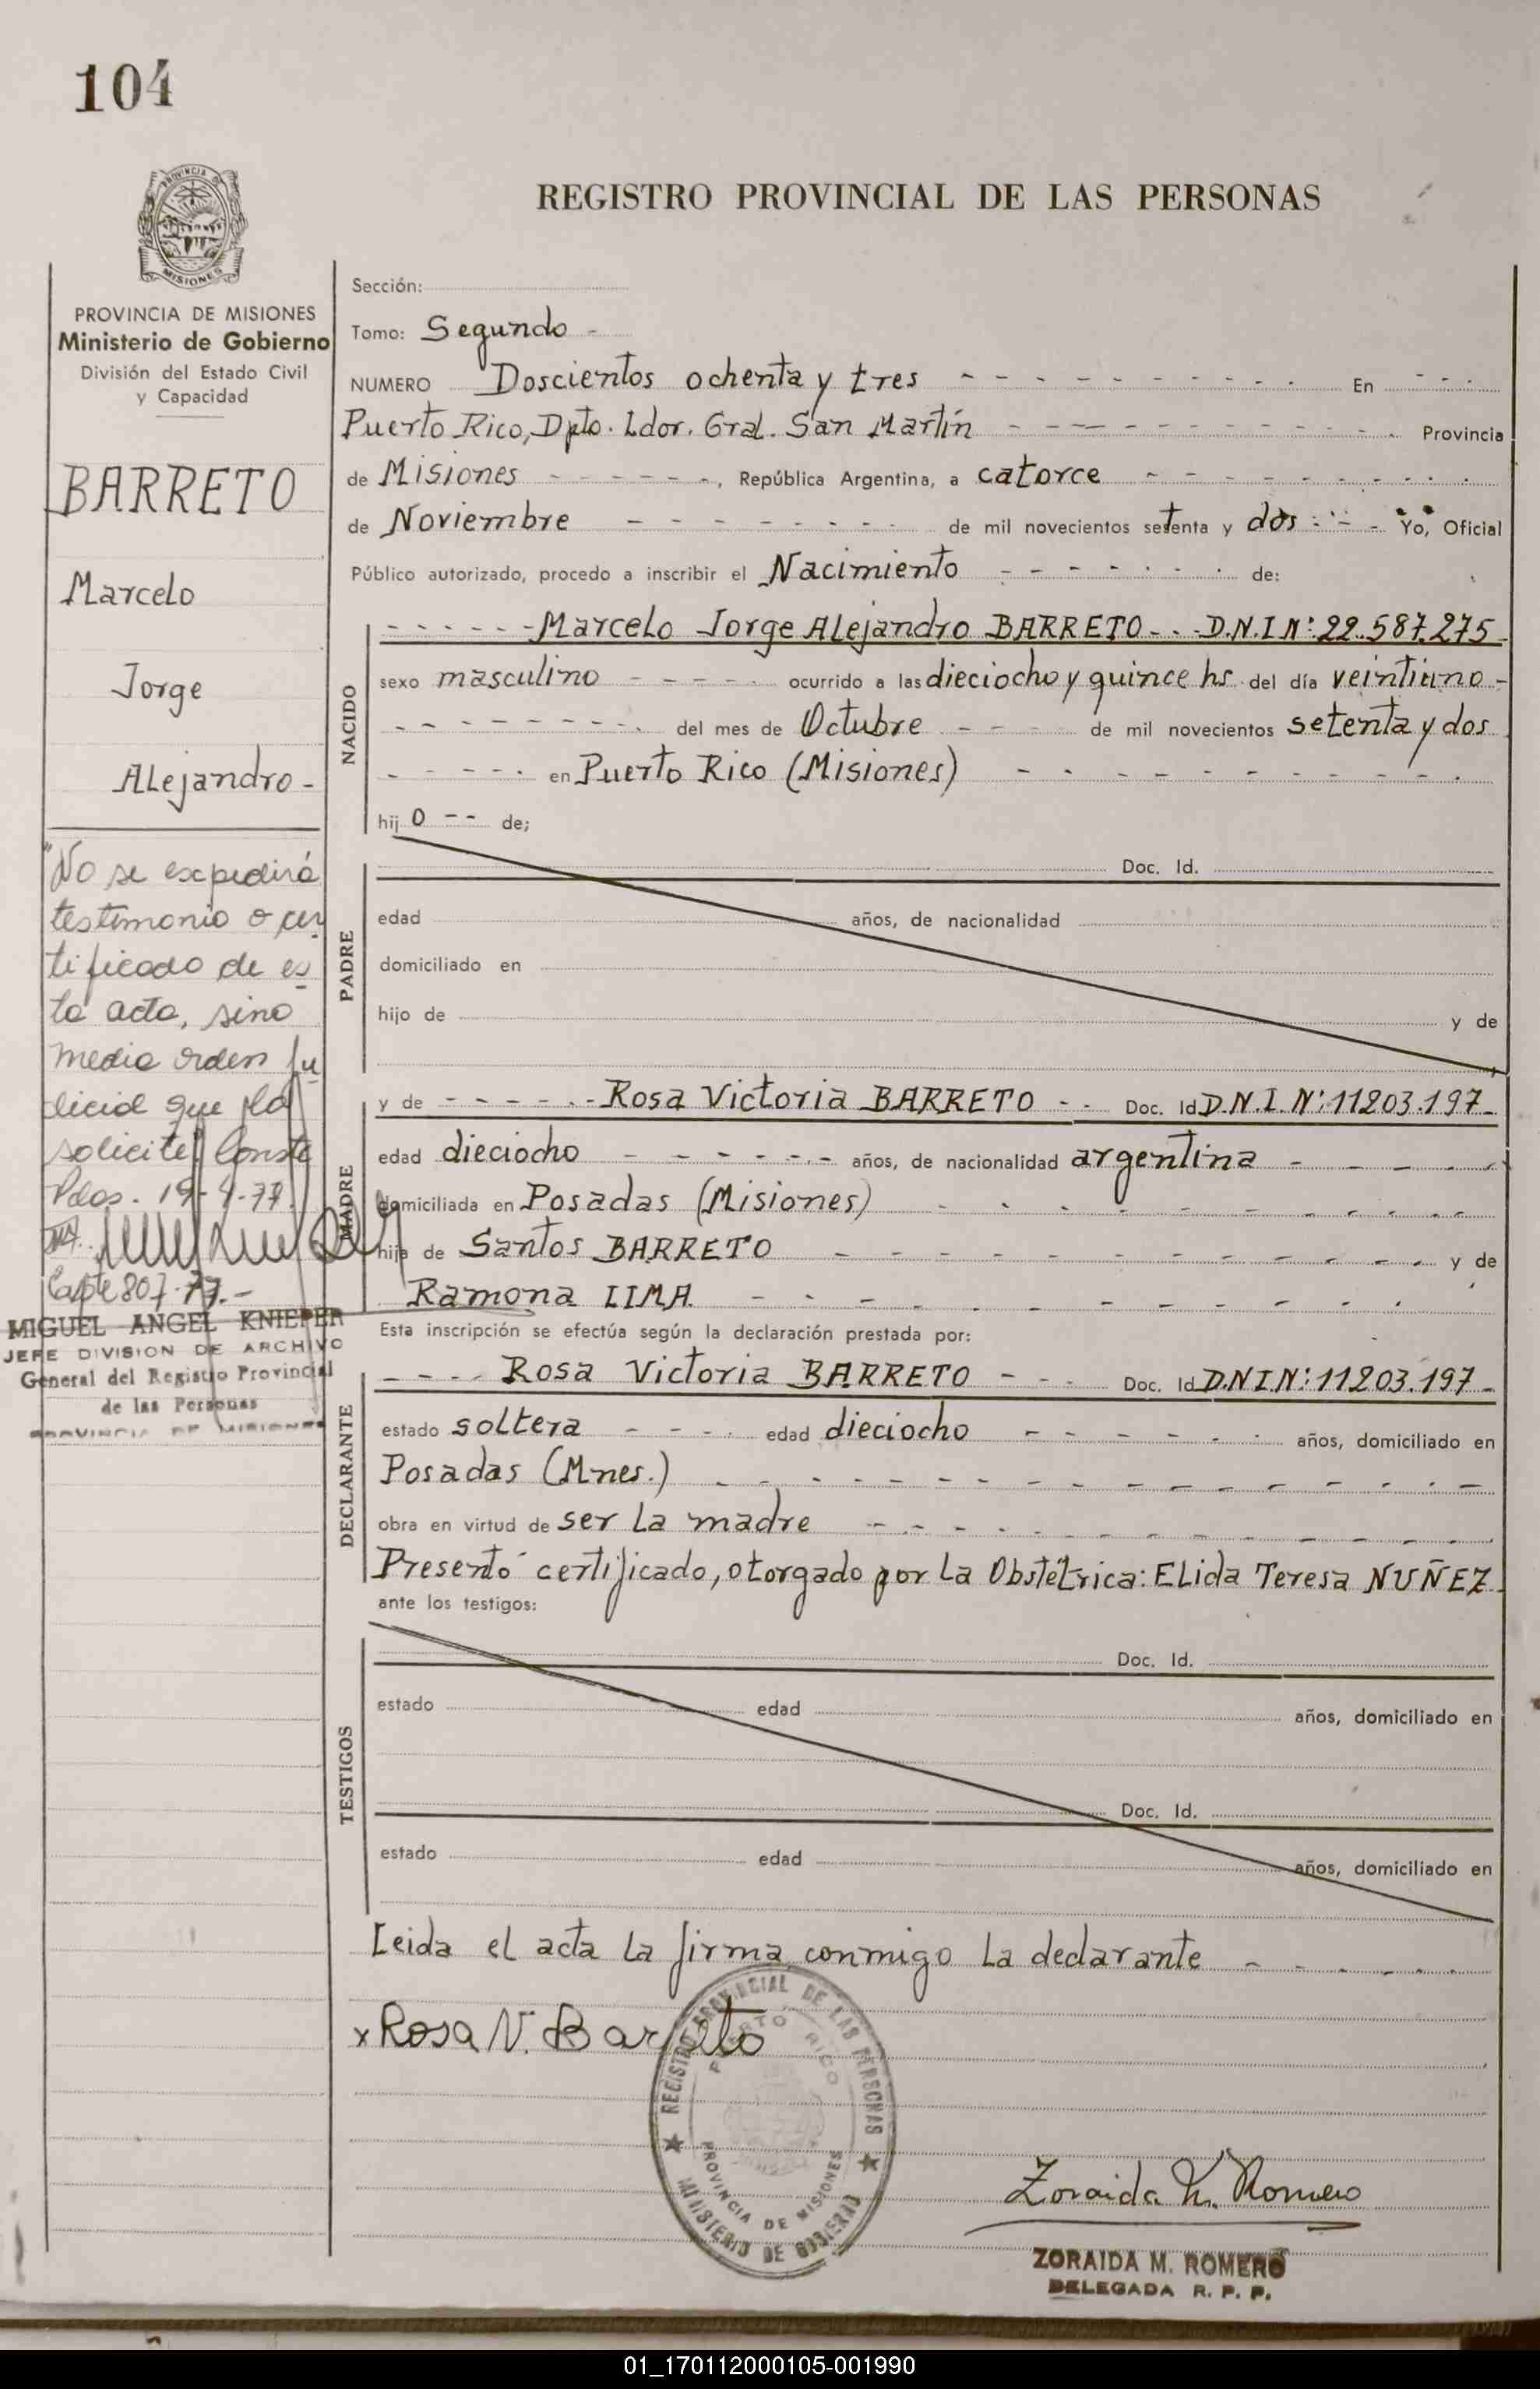 104
REGISTRO PROVINCIAL DE LAS PERSONAS
PROVINCIA DE MISIONES
Ministerio de Gobierno
División del Estado Civil
y Capacidad
BARRETO
Marcelo
Jorge
Alejandro -
"No se expedirá
testimonio o cer
tificado de es
ta acta, sino
media orden ju
dicial que la
solicite. Conste
Pdas. 19-4-77.
807-77.-
MIGUEL ANGEL KNIEPER
JEFE DIVISION DE ARCHIVO
General del Registro Provincial
de las Personas
PROVINCIA DE MISIONES
Sección:
Tomo: Segundo -
NUMERO Doscientos ochenta y tres - - - - - - - - - En - - -
Puerto Rico, Dpto. Ldor. Gral. San Martín - - - - - - - - - - - Provincia
de Misiones - - - - - -, República Argentina, a catorce - - - - - - - - -
de Noviembre - - - - - - - - de mil novecientos setenta y dos - - - Yo, Oficial
Público autorizado, procedo a inscribir el Nacimiento - - - - - - - de:
NACIDO
- - - - - - Marcelo Jorge Alejandro BARRETO - - D.N.I Nº: 22.587.275
sexo masculino - - - - - ocurrido a las dieciocho y quince hs. del día veintiuno -
- - - - - - - - - del mes de Octubre - - - de mil novecientos setenta y dos
- - - - - en Puerto Rico (Misiones) - - - - - - - - - -
hij o - - de;
PADRE
Doc. Id.
edad años, de nacionalidad
domiciliado en
hijo de y de
MADRE
y de - - - - - - Rosa Victoria BARRETO - - Doc. Id D.N.I. Nº: 11203.197 -
edad dieciocho - - - - - - años, de nacionalidad argentina - - - -
domiciliada en Posadas (Misiones) - - - - - - - - -
hija de Santos BARRETO - - - - - - - - - - y de
Ramona LIMA - - - - - - - - - -
Esta inscripción se efectúa según la declaración prestada por:
DECLARANTE
- - - - Rosa Victoria BARRETO - - - Doc. Id D.N.I Nº: 11203.197 -
estado soltera - - - - edad dieciocho - - - - - - - años, domiciliado en
Posadas (Mnes.) - - - - - - - - - - - -
obra en virtud de ser la madre - - - - - - - - - - -
Presentó certificado, otorgado por la Obstétrica: Elida Teresa NUÑEZ.
ante los testigos:
TESTIGOS
Doc. Id.
estado edad años, domiciliado en
Doc. Id.
estado edad años, domiciliado en
Leida el acta la firma conmigo la declarante - - - - - -
x Rosa V. Barreto
REGISTRO PROVINCIAL DE LAS PERSONAS
PUERTO RICO
PROVINCIA DE MISIONES
MINISTERIO DE GOBIERNO
Zoraida M. Romero
ZORAIDA M. ROMERO
DELEGADA R. P. P.
01_170112000105-001990